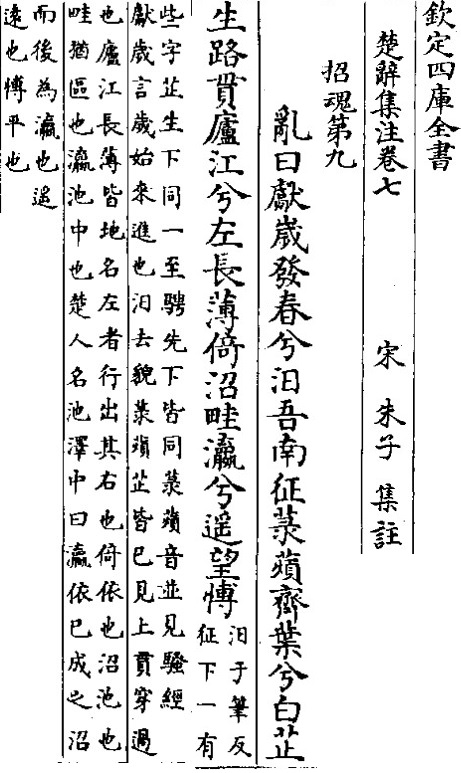 欽定四庫全書
楚辭集注卷七 宋 朱子 集註
招魂第九
亂曰獻歲發春兮汨吾南征菉蘋齊葉兮白芷
生路貫廬江兮左長薄倚沼畦瀛兮遥望愽
汨于筆反
征下一有
些字芷生下同一至騁先下皆同菉蘋音並見騷經
獻歲言歲始來進也汨去貌菉蘋芷皆已見上貫穿過
也廬江長薄皆地名左者行出其右也倚依也沼池也
畦猶區也瀛池中也楚人名池澤中曰瀛依已成之沼
而後為瀛也遥
遠也愽平也